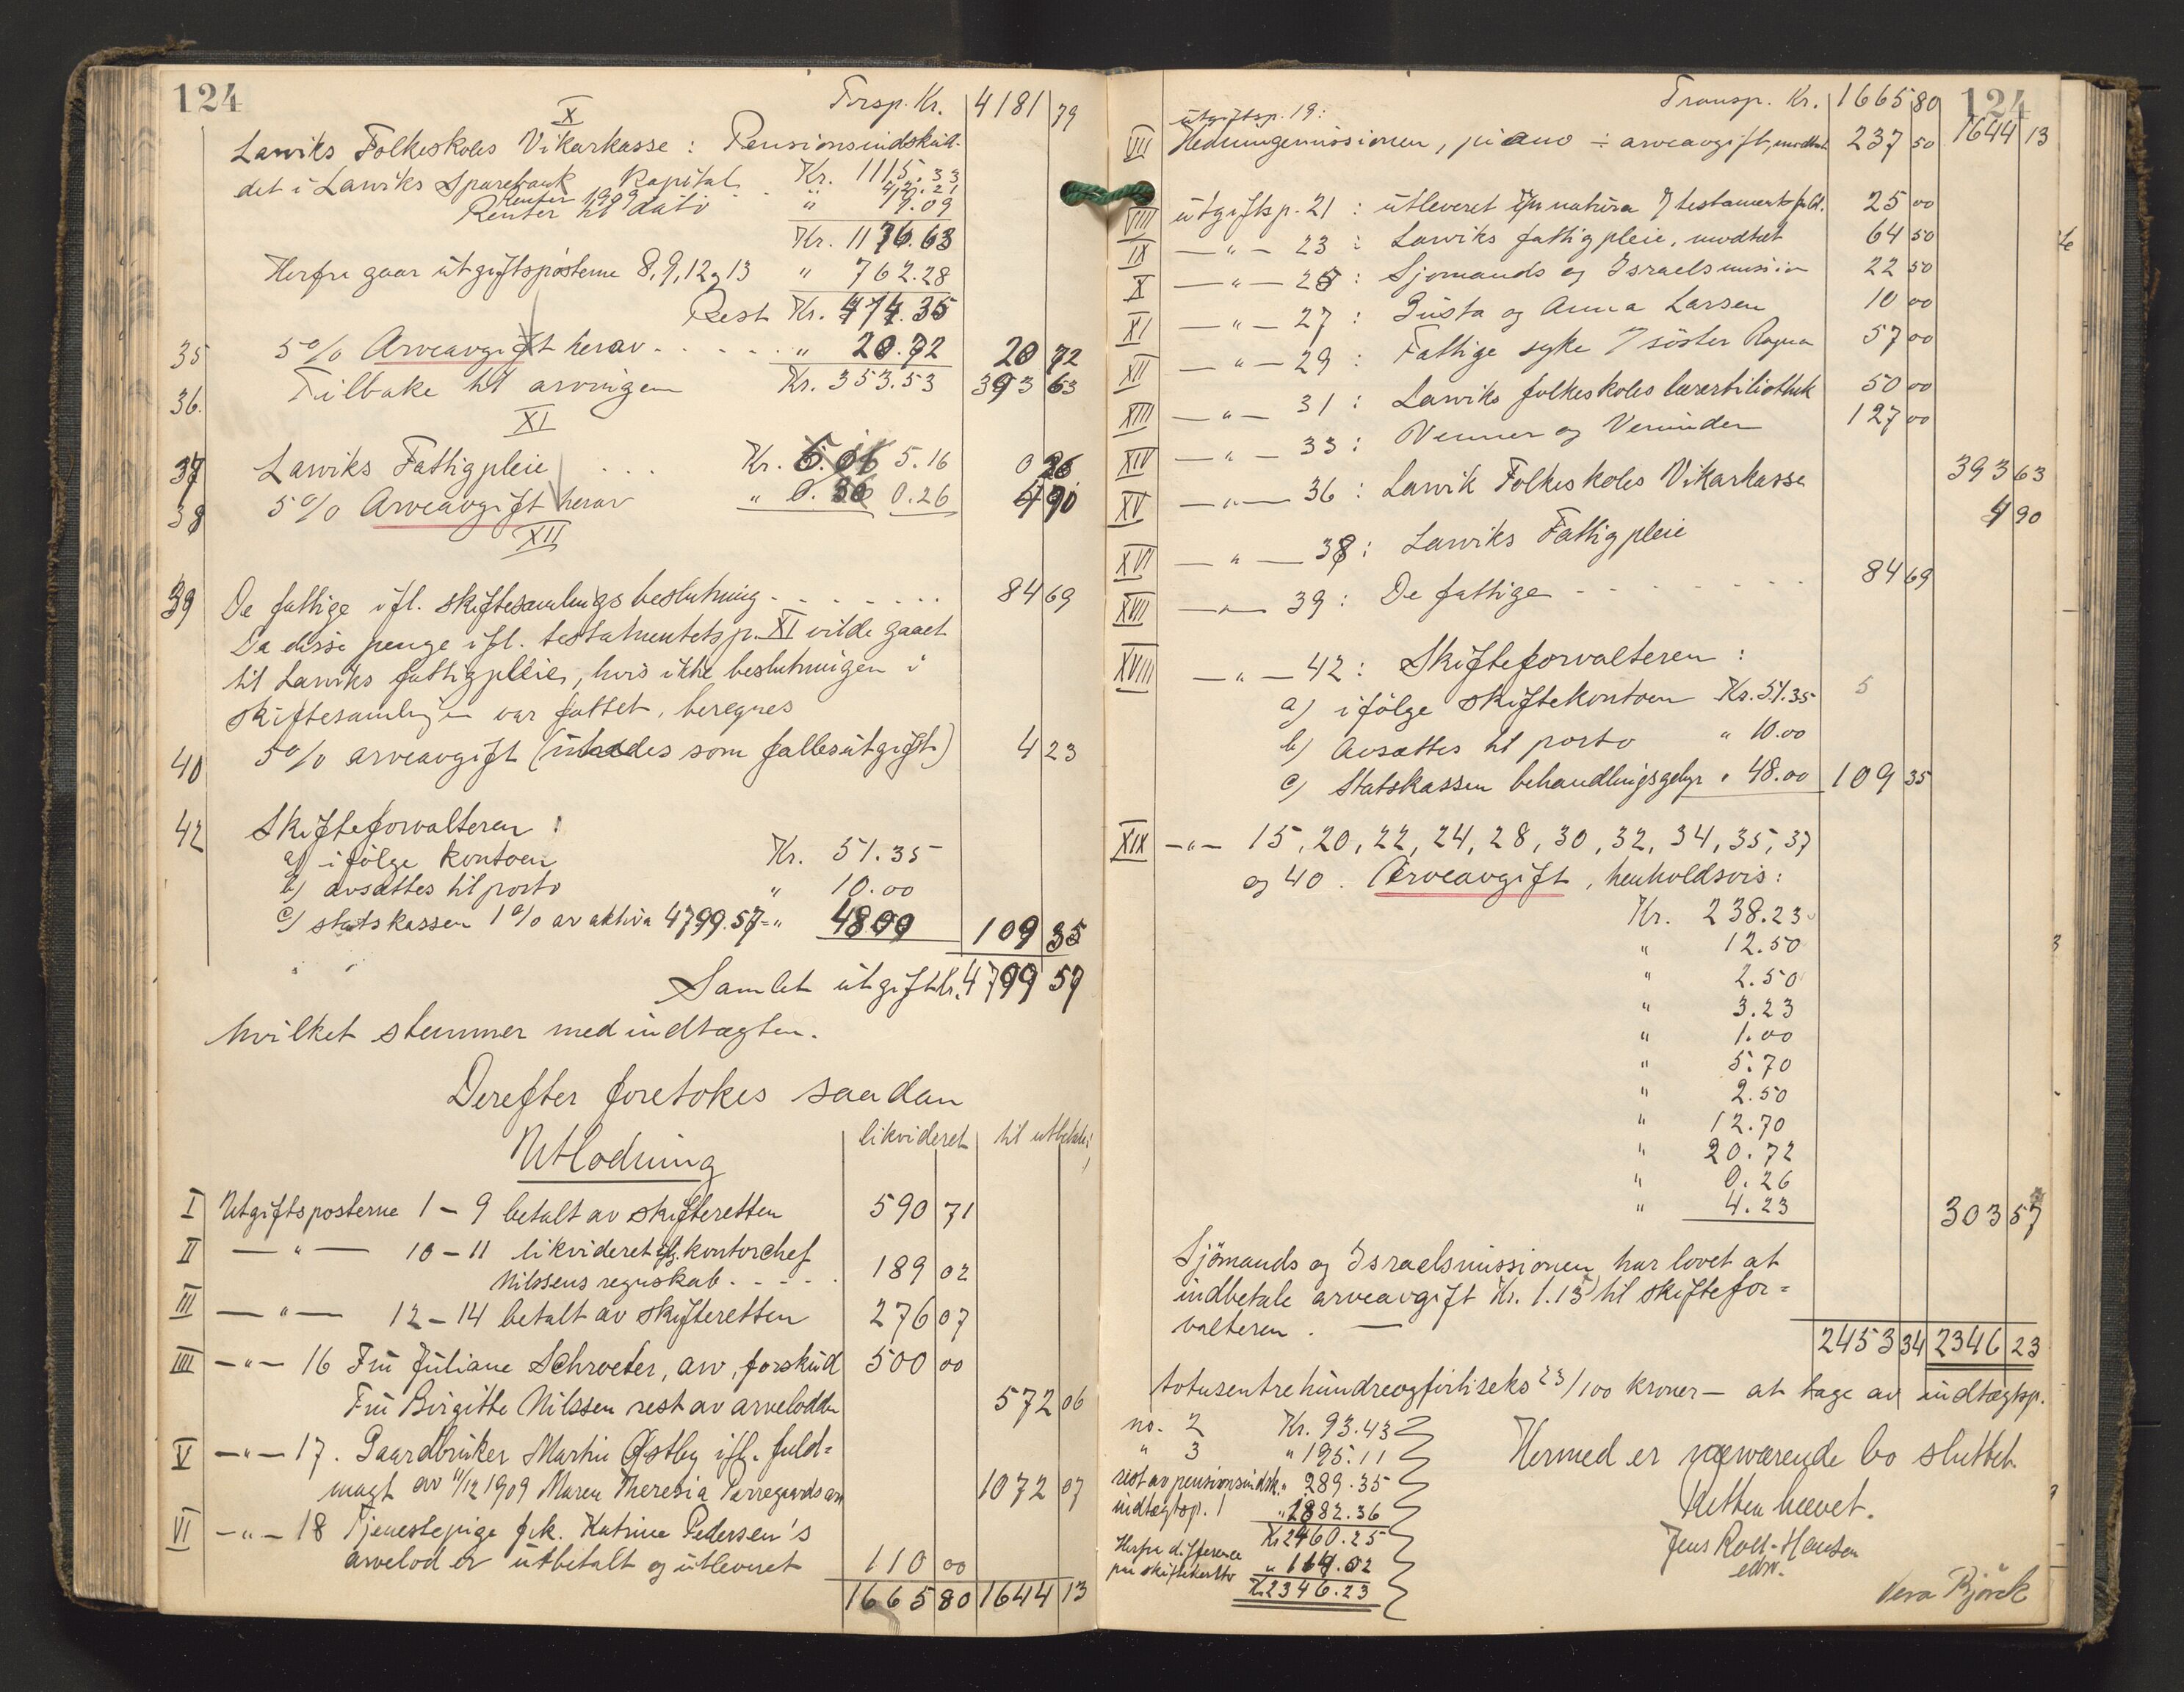 124
Trsp. Kr. 4181 79
X
Larviks Folkeskoles Vikarkasse: Pensionsindskud-
det i Larviks Sparebank Kapital Kr. 1115.33
Renter 1909 " 42.21
Renter til dato " 9.09
Kr. 1176.63
Herfra gaar utgiftsposterne 8, 9, 12 og 13 " 762.28
Rest Kr. 414.35
35 5% Arveavgift herav . . . . . " 20.72 20 72
36. Tilbake til arvingen Kr. 353.53 393 63
XI
37 Larviks Fattigpleie . . . Kr. 5.16 0 26
38 5% Arveavgift herav " 0.26 4 90
XII
39 De fattige ifl. skiftesamlings beslutning . . . . . . . 84 69
Da disse penge ifl. testamentets p. XI vilde gaaet
til Larviks fattigpleie, hvis ikke beslutningen i
skiftesamlingen var fattet, beregnes
40 5% arveavgift (utredes som fællesutgift) 4 23
42 Skifteforvalteren:
a) ifølge kontoen Kr. 51.35
b) avsættes til porto " 10.00
c) statskassen 1% av aktiva 4799.57 = " 48.00 109 35
Samlet utgift kr. 4799 57
hvilket stemmer med indtægten.
Derefter foretokes saadan
Utlodning
likvideret til utbetaling
I Utgiftsposterne 1 - 9 betalt av skifteretten 590 71
II — " — 10 - 11 likvideret ifl. kontorchef
Nilssens regnskab . . . . . 189 02
III — " — 12 - 14 betalt av skifteretten 276 07
IIII — " — 16 Fru Juliane Schroeter, arv, forskud 500 00
Fru Birgitte Nilssen rest av arvelodden 572 06
V — " — 17. Gaardbruker Martin Østby ifl. fuld-
magt av 11/12 1909 Maren Theresia Tarregaards arv 1072 07
VI — " — 18 Tjenestepige frk. Katrine Pedersen's
arvelod er utbetalt og utleveret 110 00
1665 80 1644 13
124
Transp. Kr. 1665 80 1644 13
utgiftsp. 19:
VII Hedningemissionen, piano ÷ arveavgift, modtat 237 50
VIII utgiftsp. 21: utleveret in natura 25 00
IX — " — 23: Larviks fattigpleie, modtat 64 50
X — " — 25: Sjomands og Israelsmission 22 50
XI — " — 27: Gusta og Anna Larsen 10 00
XII — " — 29: Fattige syke v/ søster Ragna 57 00
XIII — " — 31: Larviks folkeskoles lærerbibliothek 50 00
XIV — " — 33: Venner og Veninder 127 00
XV — " — 36: Larvik Folkeskoles Vikarkasse 393 63
XVI — " — 38: Larviks Fattigpleie 4 90
XVII — " — 39: De fattige . . . . . . . 84 69
XVIII — " — 42: Skifteforvalteren:
a) ifølge skiftekontoen Kr. 51.35 5
b) avsættes til porto " 10.00
c) Statskassen behandlingsgebyr " 48.00 109 35
XIX — " — 15, 20, 22, 24, 28, 30, 32, 34, 35, 37
og 40. Arveavgift, henholdsvis:
Kr. 238.23
" 12.50
" 2.50
" 3.23
" 1.00
" 5.70
" 2.50
" 12.70
" 20.72
" 0.26
" 4.23 303 57
Sjømands og Israelsmissionen har lovet at
indbetale arveavgift Kr. 1.13) til skiftefor-
valteren. —
2453 34 2346 23
totusentrehundreogførtiseks 23/100 kroner — at tage av indtægtsp.
no. 2 Kr. 93.43
" 3 " 195.11
rest av pensionsindsk. " 289.35
indtægtsp. 1 " 1882.36
Kr. 2460.25
Herfra difference
paa skiftekonto " 114.02
Kr. 2346.23
Hermed er nærværende bo sluttet.
Retten hævet.
Jens Roll-Hansen
edsv.
Vera Bjørck